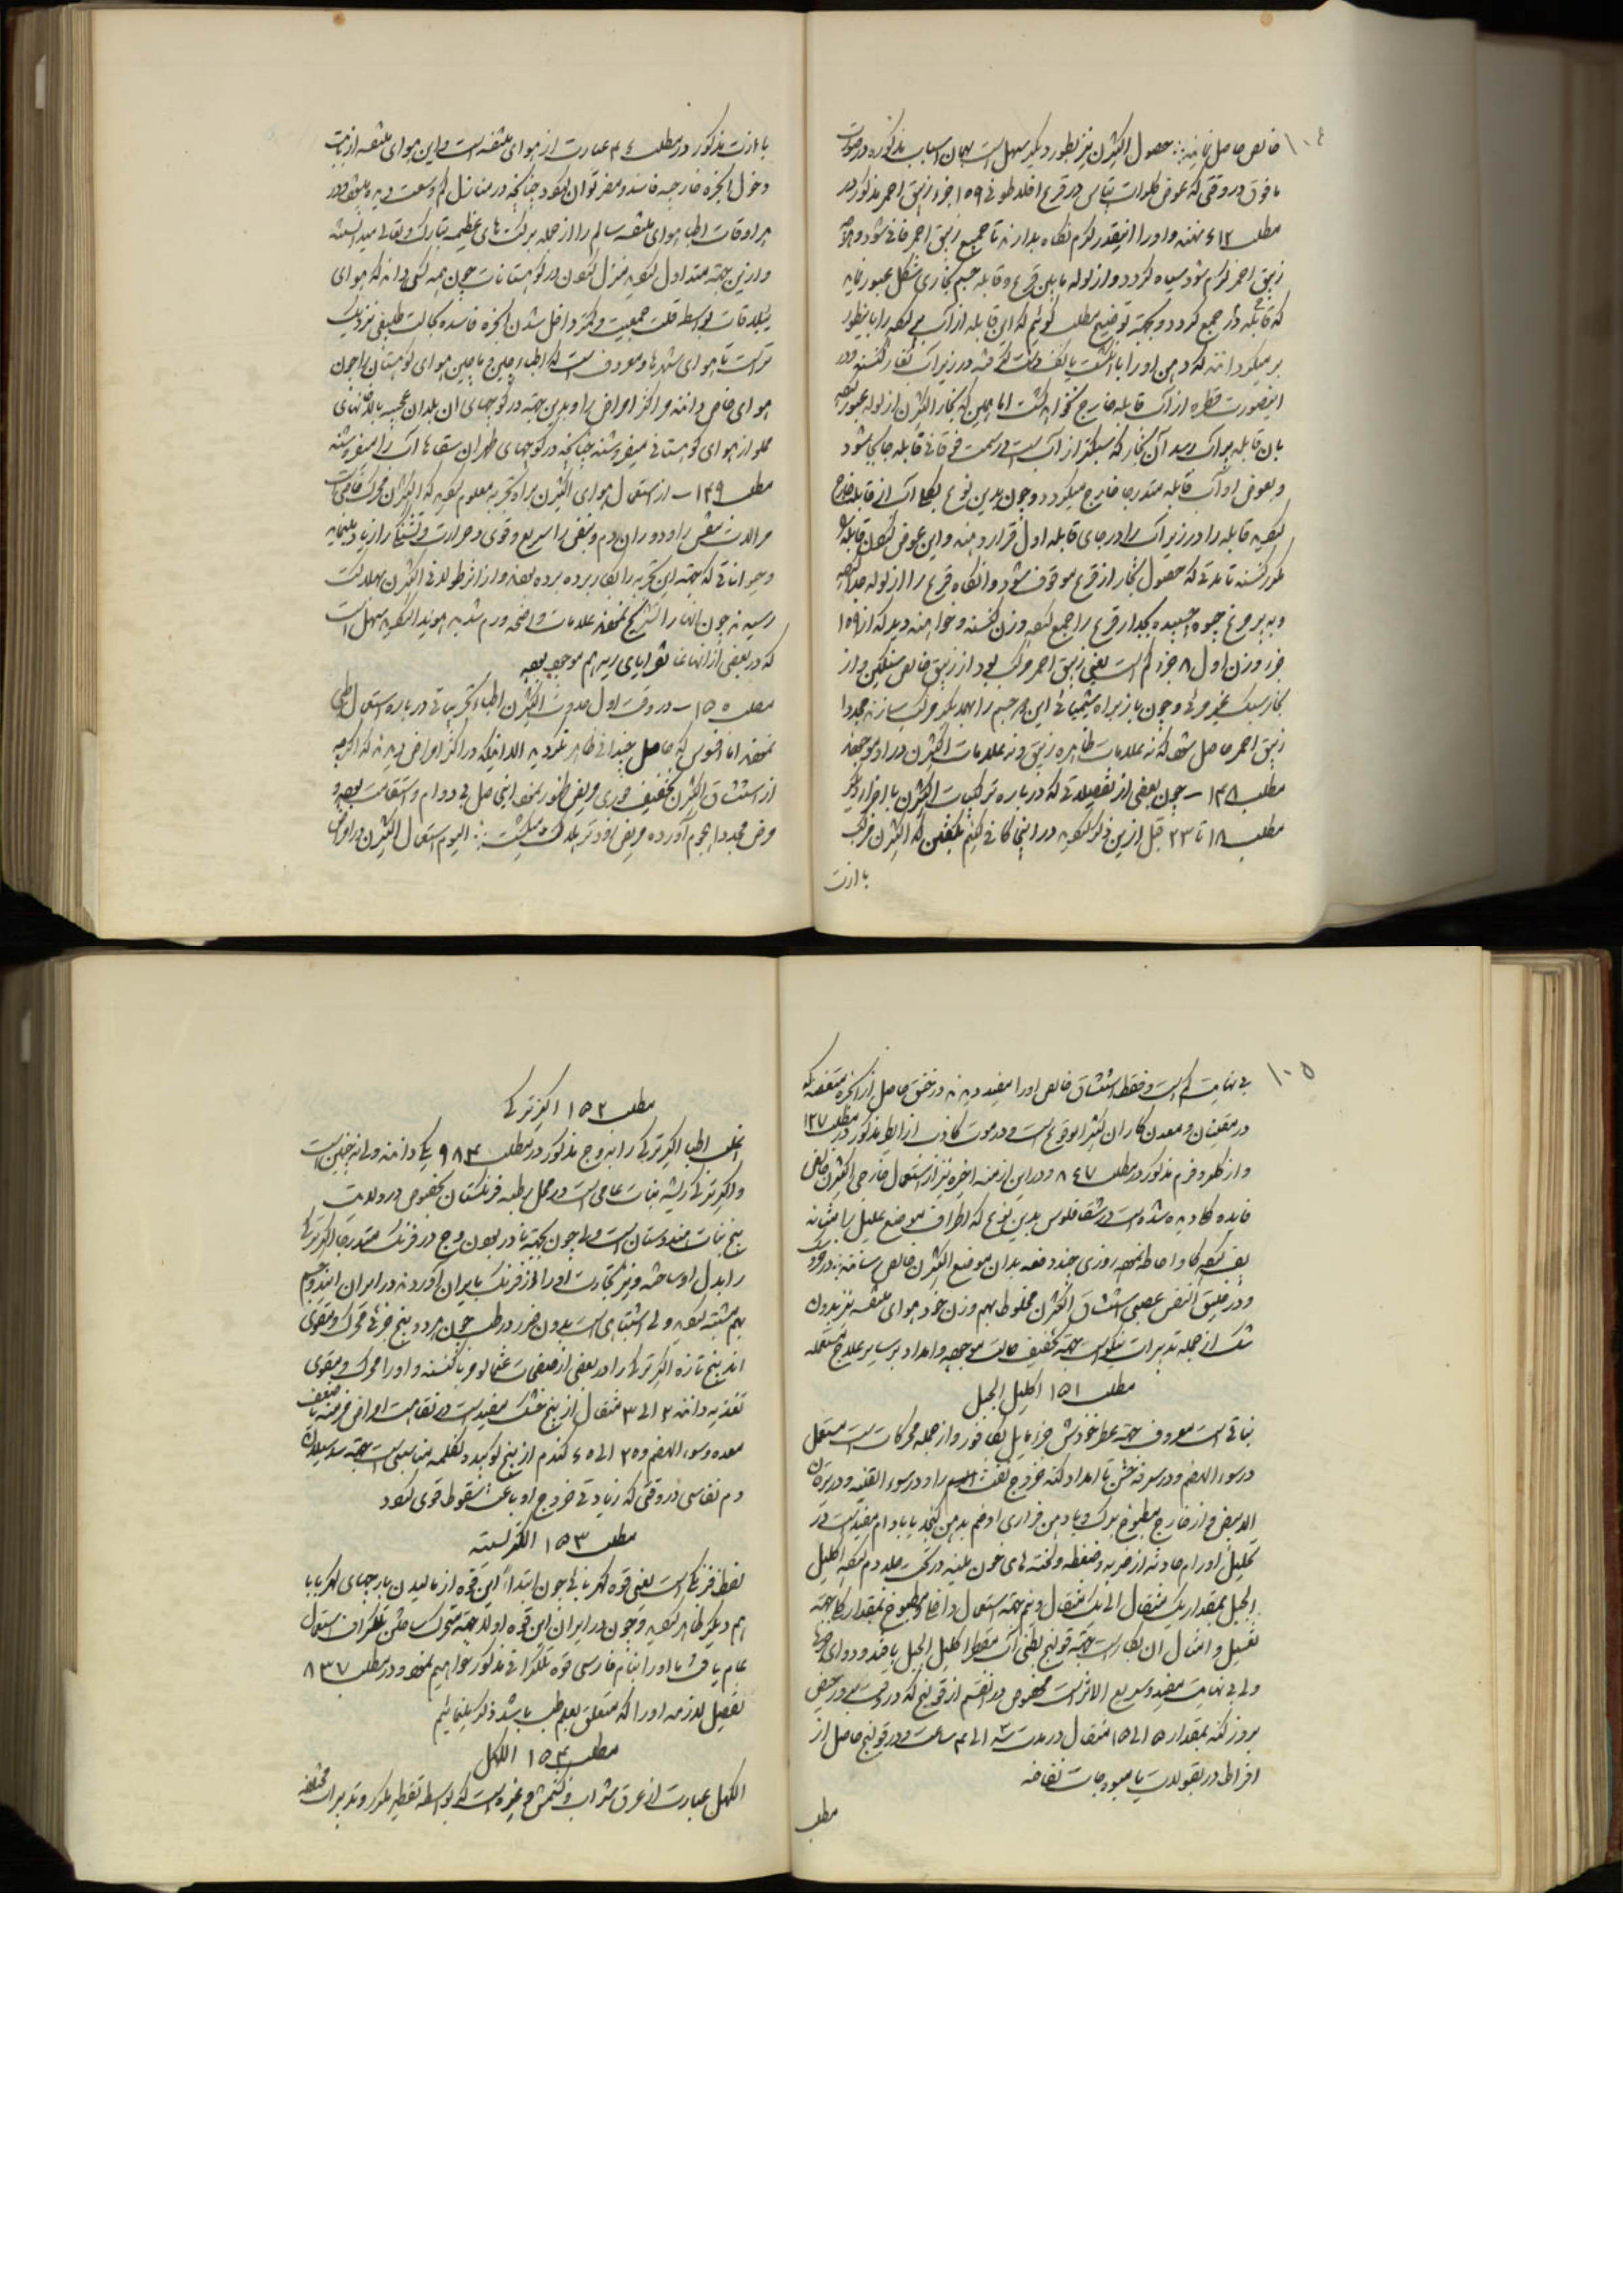 ۱۰۴
خالص حاصل نمایند حصول اکثرن نیز بطور دیگر سهل است بهمان اسباب مذکوره در صورت
مافوق در وقتی که عوض کلورات پتاس در قرع افلاطونی ۱۵۹ جزء زیبق احمر مذکور در
مطلب ۶۱۲ نهند و او را اینقدر گرم نگاه بدارند تا جمیع زیبق احمر فانی شود و
زیبق احمر گرم شود سیاه گردد و از لوله مابین قرع و قابله جسم بخاری شکل عبور نماید
که در قابله جمع گردد و بجهة توضیح مطلب گوئیم که این قابله از آب پر کرده را باینطور
بر میگردانند که دهن او را با انگشت یا کف دست گرفته در زیر آب تغار گذاشته در
اینصورت قطره از آب قابله خارج نخواهد گشت اما همین که بخار اکثرن از لوله عبور کرده
بان قابله پر آب رسد آن بخار که سبکتر از آب است در سمت فوقانی قابله جایگیر شود
و بعوض او آب قابله متدرجا خارج میگردد و چون بدین نوع کل آب از قابله خارج
گردد قابله را در زیر آب در جای قابله اول قرار دهند و این عوض کردن قابله را
مکرر کنند تا مدتی که حصول بخار از قرع موقوف شود و آنگاه قرع را از لوله جدا کرده
و به پر مرغ جیوه چسبیده بجدار قرع را جمع کرده وزن کنند و خواهند دید که از ۱۵۹
جزء وزن اول ۸ جزء کم است یعنی زیبق احمر مرکب بود از زیبق خالص سنگین و از
بخار سبک غیر مرئی و چون باز براه شیمیائی این هر دو جسم را بهمدیگر مرکب سازند مجددا
زیبق احمر حاصل شود که نه علامات ظاهره زیبق و نه علامات اکثرن در او موجود
مطلب ۱۴۸ – چون بعضی از تفصیلاتی که در باره ترکیبات اکثرن با اجزاء دیگر
مطلب ۱۸ تا ۲۳ قبل ازین ذکر کردید در اینجا کافی کنیم بگفتن که اکثرن مرکب
با ازت
با ازت مذکور در مطلب ۴۴ عبارت از هوای متنفسه است و این هوای متنفسه از بابت
دخول ابخره خارجیه فاسد و مضر تواند بود چنانچه در منازل کم وسعت دیده میشود و در
هر اوقات اطبا هوای متنفسه سالم را از جمله برکت های عظیمه تبارک و تعالی میدانسته
و ازین جهة متداول گردید منزل نمودن در کوهستانات چون همه کس داند که هوای
ییلاقات بواسطه قلت جمعیت و کمتر داخل شدن ابخره فاسده بحالت طبیعی نزدیک
تر است تا هوای شهرها و معروف است که اطباء چین و ماچین هوای کوهستان را چون
هوای خاص دانند در اکثر امراض را و بدین جهة در کوچهای آن بلدان عجیبه بادخانهای
مملو از هوای کوهستانی میفروشند چنانچه در کوچهای طهران سقاها آب را میفروشند
مطلب ۱۴۹ – از استعمال هوای اکثرن برای تجربه معلوم گردید که اکثرن محرک خاص است
مر آلات تنفس را و دوران دم و نبض را سریع و قوی و حرارت و تشنگی را زیاد مینماید
و حیواناتی که بجهة این تجربه را بکار برده بودند و از اثر طولانی اکثرن بهلاکت
رسیدند چون آنها را تشریح نمودند علامات واضحه ورم شدید هویدا گردید سهل است
که در بعضی از آنها غانغرایای ریه هم موجود بود
مطلب ۱۵۰ – در وقت اول حدوث اکثرن اطباء تجربیاتی در باره استعمال طبی
نمودند اما افسوس که حاصل چندانی ظاهر نگردید الا اینکه در اکثر امراض دیدند که اگرچه
از استنشاق اکثرن تخفیف فوری مریض ظهور نمود این حاصل بی دوام و استقامت بوده و
مرض مجددا هجوم آورده مریض زودتر بهلاکت میگشت الیوم استعمال اکثرن در امراض
۱۰۵
بی نهایت کم است و فقط استنشاق خالص او را مفید دیدند در خفق حاصل از ابخره متعفنه که
در مقنیان و معدن کاران کثیر الوقوع است و در موت کاذب از ابخره مذکور در مطلب ۱۲۷
و از کلروفرم مذکور در مطلب ۸۴۷ و در این ازمنه اخیره نیز از استعمال خارجی اکثرن خالص
فایده کلی دیده شده است در شقاقلوس بدین نوع که اطراف موضع علیل را بمثانه
بقر کرده گاو احاطه نموده روزی چند دفعه بدان موضع اکثرن خالص رسانند
و در ضیق النفس عصبی استنشاق اکثرن مخلوط بهم وزن خود هوای متنفسه نیز بدون
شک از جمله تدبیرات نیکو است بجهة تخفیف حالت موجوده و امداد بر سایر علاج مستعمله
مطلب ۱۵۱ اکلیل الجبل
نباتی است معروف بجهة عطر خودش جزء مایل بکافور و از جمله محرکات است مستعمل
در سوء الهضم و در سرفه تا امداد کند خروج نفث را و در سوء القنیه و در یرقان
الابیض و از خارج مطبوخ برگ و با دهن فراری او ضم بدهن کنجد یا بادام مفید است در
تحلیل اورام حادثه از ضربه و ضغطه و لخته های خون بسته در تحت جلد دم کرده اکلیل
الجبل بمقدار یک مثقال الی یک مثقال و نیم بجهة استعمال داخلی و مطبوخ بمقدار کلی بجهة
تغسیل و امثال آن بکار است بجهة قولنج بطنی آب مقطر اکلیل الجبل با قند و دوای
ولی بی نهایت مفید و سریع الاثر است مخصوص در آنقسم از قولنج که در وقت حیض
بروز کند بمقدار ۵ الی ۱۵ مثقال در مدت ۳ الی ۴ ساعت و در قولنج حاصل از
افراط در بقولات یا میوه جات نفاخه
مطلب
مطلب ۱۵۲ اکیر ترکی
اغلب اطبا اکیر ترکی را به وج مذکور در مطلب ۹۸۴ یکی دانند ولی نه چنین است
و اکیر ترکی ریشه نبات عامی است در محل رطبه فرنگستان بخصوص در ولایت
بیخ نبات هندوستان است ولی چون بجهة نادر بودن وج در فرنگ متدرجا اکیر ترکی
را بدل او ساخته و نیز تجارت او را از فرنگ بایران آوردند در ایران
بهم مشتبه گردید ولی اشتباهی است بدون ضرر در طب چون هر دو بیخ محرک و مقوی
اند بیخ تازه اکیر ترکی را در بعضی از عثمانلو مربا کنند و او را محرک و مقوی
تغذیه دانند ۲ الی ۳ مثقال از بیخ خشک مفید است در نقاهت امراض مزمنه با ضعف
معده و سوء الهضم و ۲۵ الی ۴۵ گندم از بیخ کوبیده بکفلمه مناسب است بجهة سد سیلان
دم نفاسی در وقتی که زیادتی خروج او باعث سقوط قوی گردد
مطلب ۱۵۳ الکتریسیته
لفظ فرنگی است یعنی قوه کهربائی چون ابتداء این قوه از مالیدن پارچهای کهربا با
هم دیگر ظاهر گردید و چون در ایران این قوه اولا بجهة متحرک ساختن تلگراف استعمال
عام یافت ما او را بنام فارسی قوه تلگرافی مذکور خواهیم نمود و در مطلب ۸۳۷
تفصیل لازمه او را که متعلق بعلم طب باشد ذکر مینمائیم
مطلب ۱۵۴ الکل
الکل عبارت از عرق شراب و کشمش و غیره است که بواسطه تقطیر مکرر و تدبیرات مختلفه